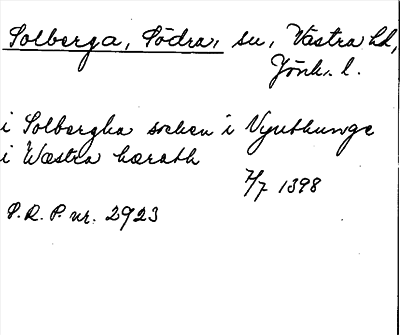 Solberga, Södra, sn, Västra hd,
Jönk. l.
i Solbergha sochen i Vynthunge
i Wæstra hærath
7/7 1398
P.R.P. nr. 2923